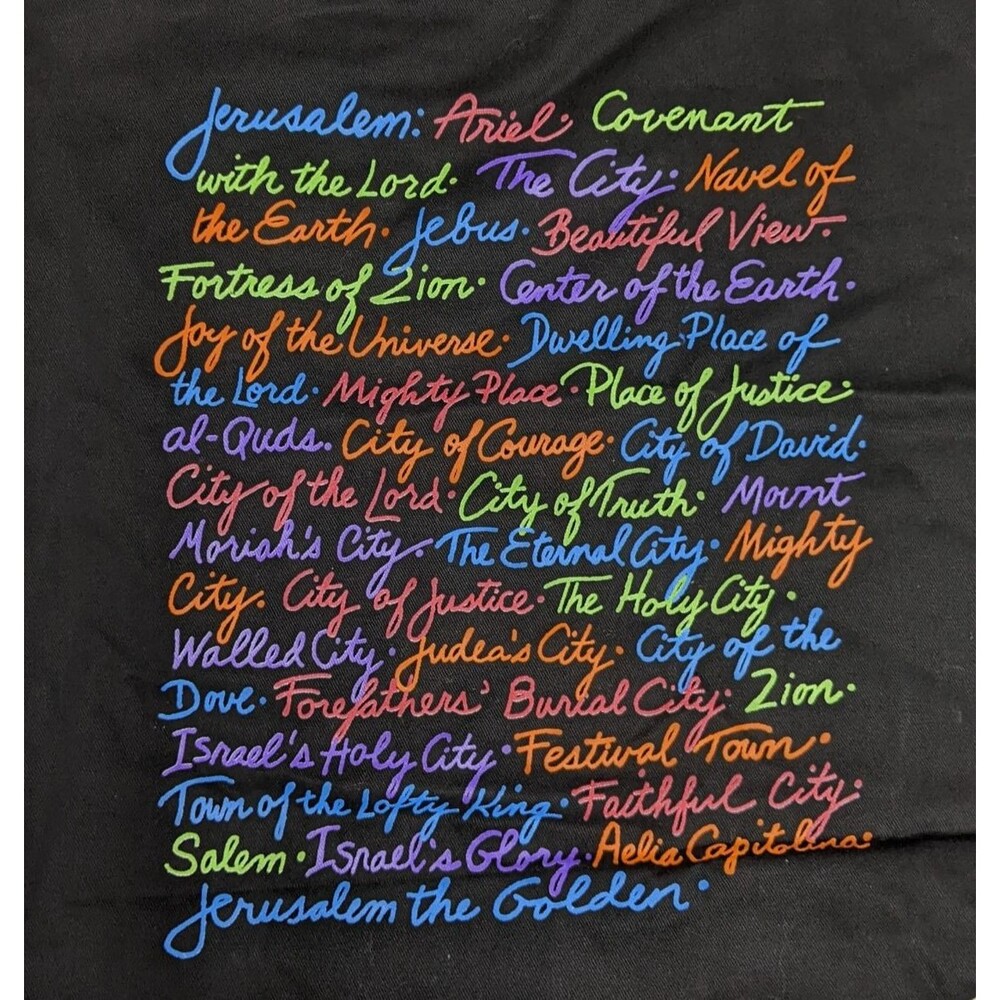 Jerusalem: Ariel· Covenant
with the Lord· The City· Navel of
the Earth· Jebus· Beautiful View·
Fortress of Zion· Center of the Earth·
Joy of the Universe· Dwelling Place of
the Lord· Mighty Place· Place of Justice·
al-Quds· City of Courage· City of David·
City of the Lord· City of Truth· Mount
Moriah's City· The Eternal City· Mighty
City· City of Justice· The Holy City·
Walled City· Judea's City· City of the
Dove· Forefathers' Burial City· Zion·
Israel's Holy City· Festival Town·
Town of the Lofty King· Faithful City·
Salem· Israel's Glory· Aelia Capitolina·
Jerusalem the Golden·